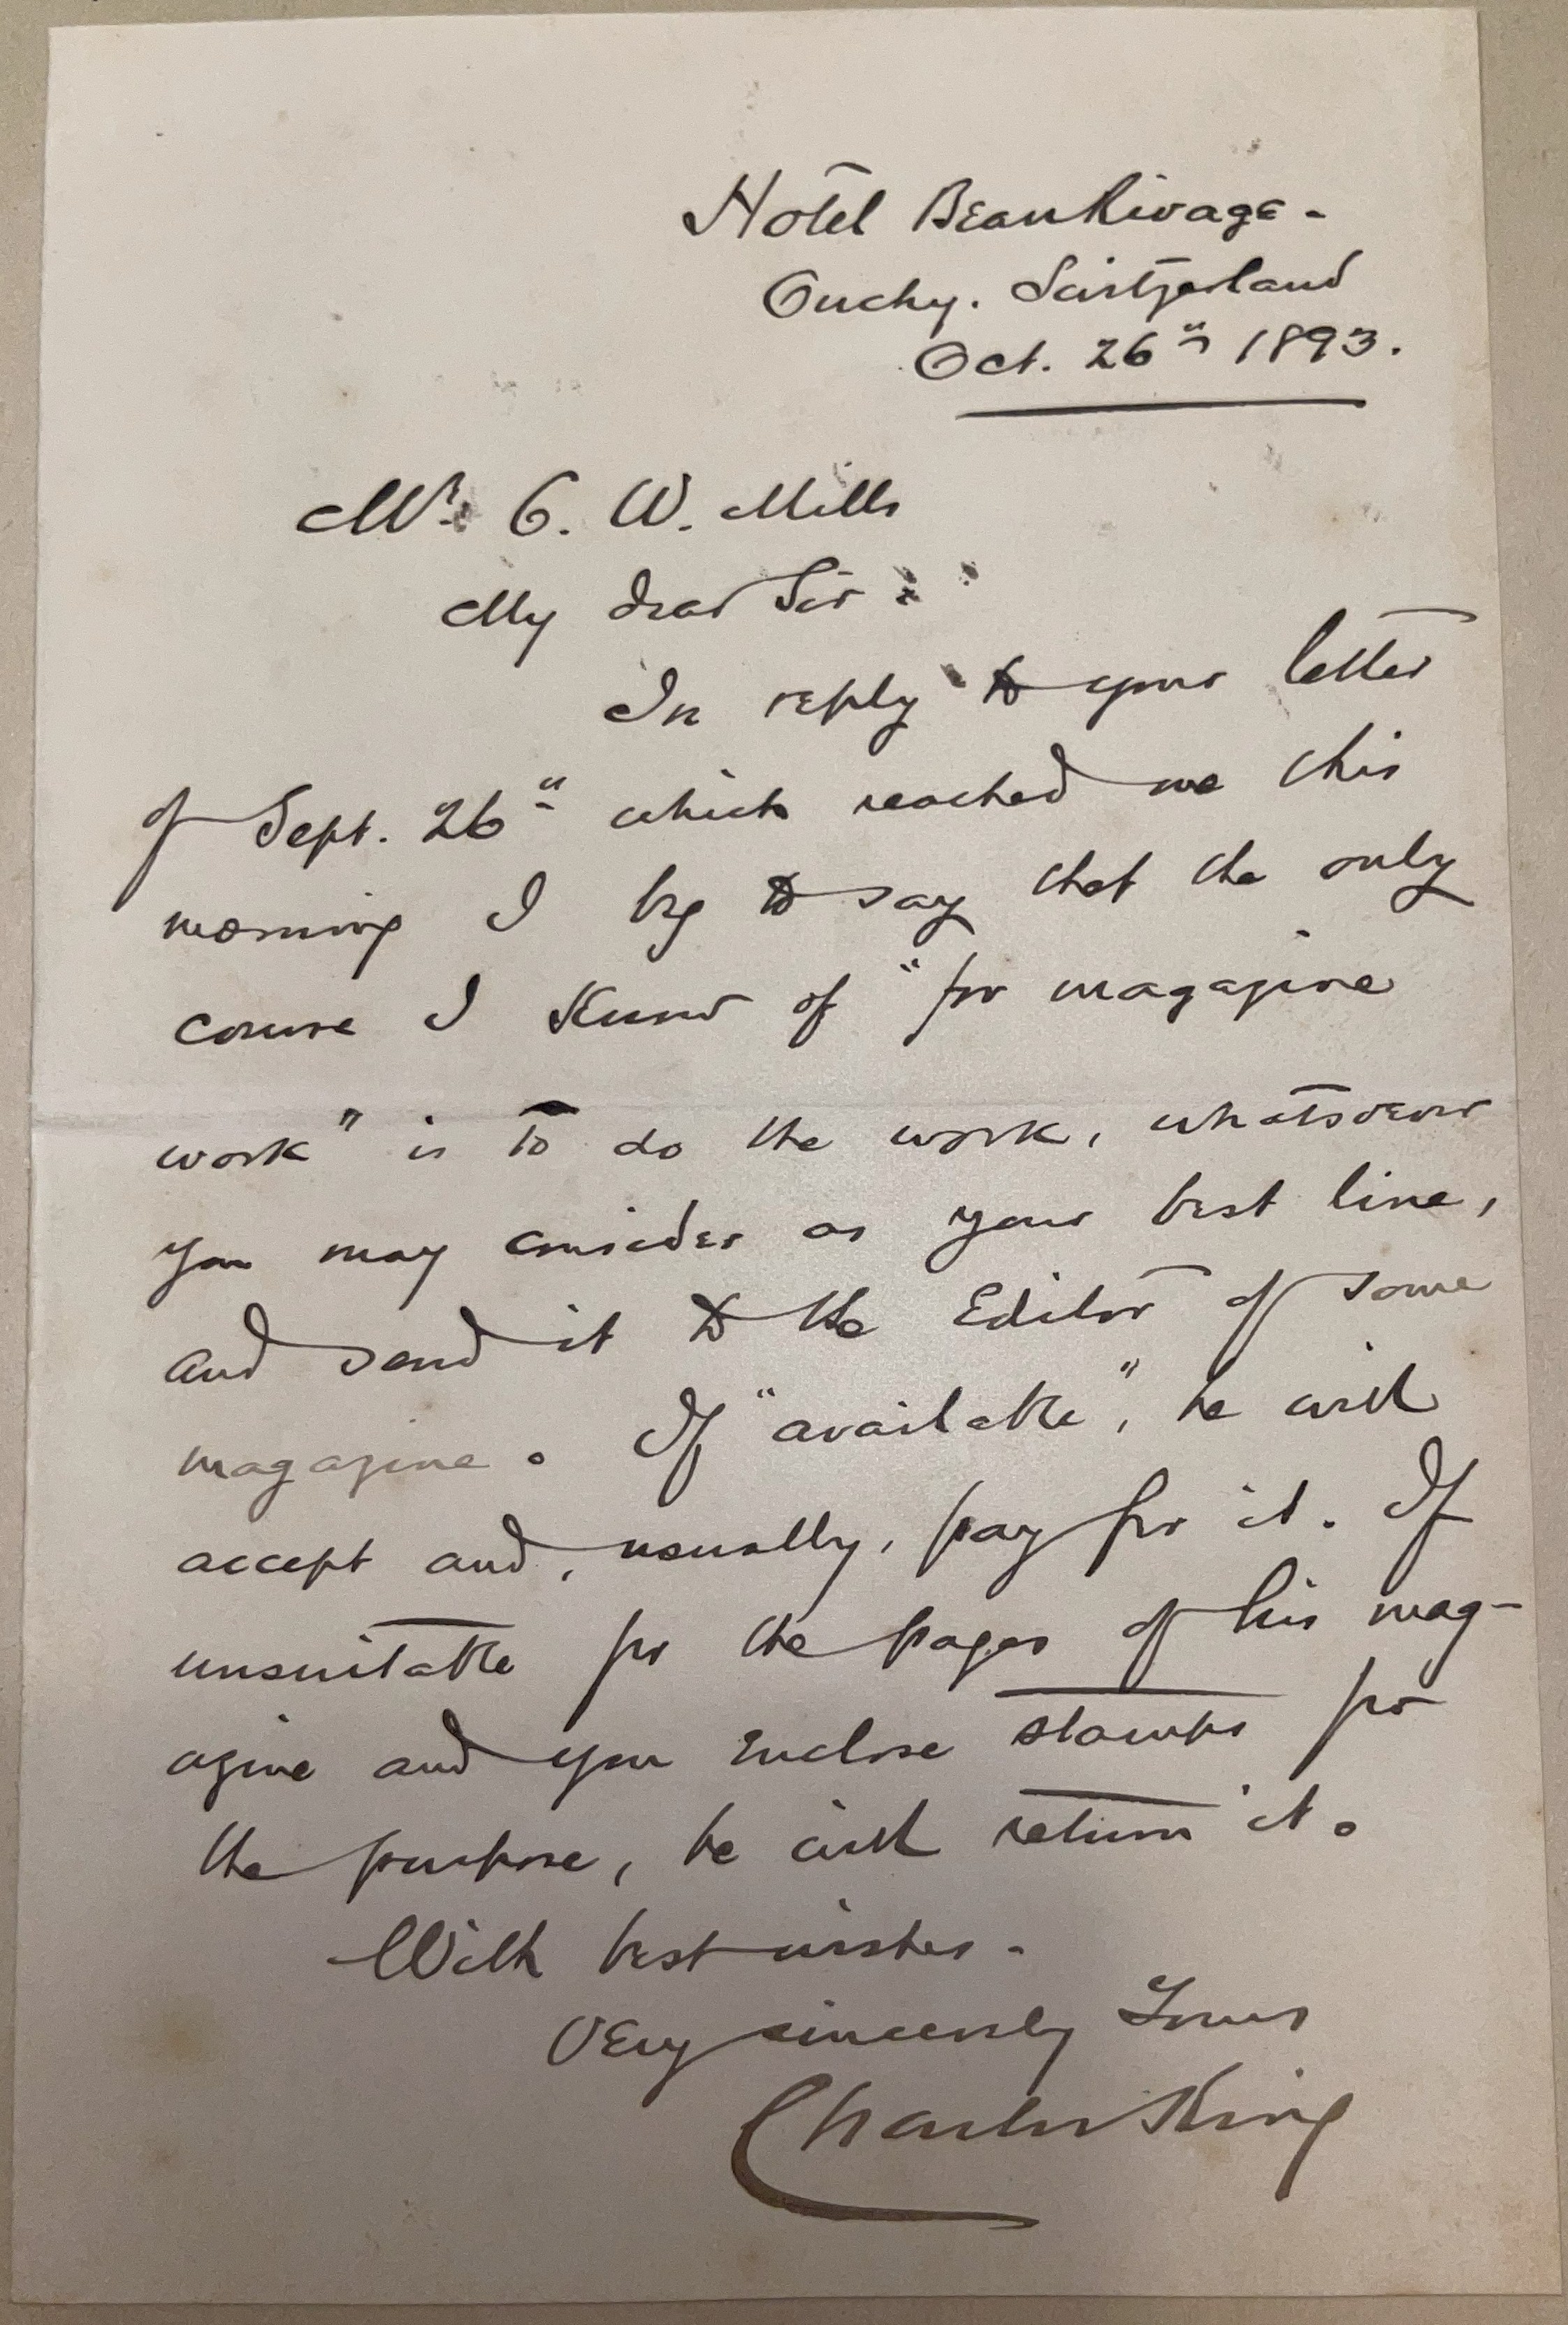 Hotel Beau Rivage -
Ouchy. Switzerland
Oct. 26" 1893.
Mr. C. W. Mills
My dear Sir:
In reply to your letter
of Sept. 26" which reached me this
morning I beg to say that the only
course I know of "for magazine
work" is to do the work, whatsoever
you may consider as your best line,
and send it to the Editor of some
magazine. If "available", he will
accept and, usually, pay for it. If
unsuitable for the pages of his mag-
azine and you enclose stamps for
the purpose, he will return it.
With best wishes -
Very sincerely Yours
Charles King